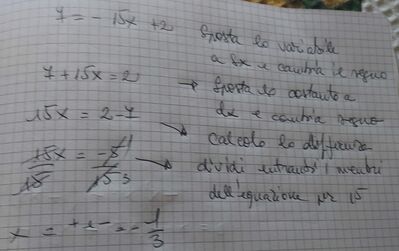 7 = - 15x + 2
sposta la variabile
a sx e cambia il segno
7 + 15x = 2
→ sposta la costante a
dx e cambia segno
15x = 2 - 7
→ calcola la differenza
15x/15 = -5/15 3
→ dividi entrambi i membri
dell'equazione per 15
x = + x - = - 1/3